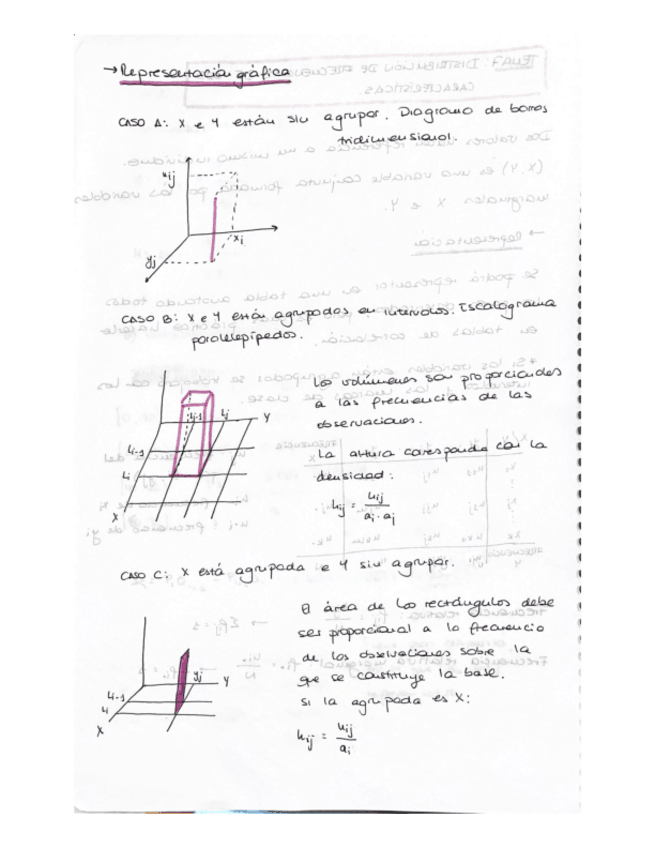 → Representación gráfica
CASO A: X e Y están sin agrupar. Diagrama de barras
tridimensional.
nij
xi
yj
CASO B: X e Y están agrupados en intervalos. Escalograma
paralelepípedos.
Los volúmenes son proporcionales
a las frecuencias de las
observaciones.
La altura corresponde con la
densidad:
hij = nij / ai · aj
Li-1
Li
Lj-1
Lj
Y
X
CASO C: X está agrupada e Y sin agrupar.
El área de los rectángulos debe
ser proporcional a la frecuencia
de los observaciones sobre la
que se constituye la base.
Si la agrupada es X:
hij = nij / ai
Li-1
Li
yj
Y
X